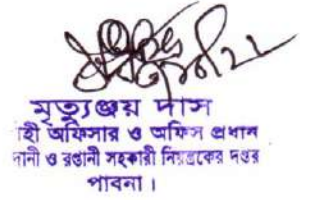 মৃত্যুঞ্জয় দাস
হী অফিসার ও অফিস প্রধান
দানী ও রপ্তানী সহকারী নিয়ন্ত্রকের দপ্তর
পাবনা।